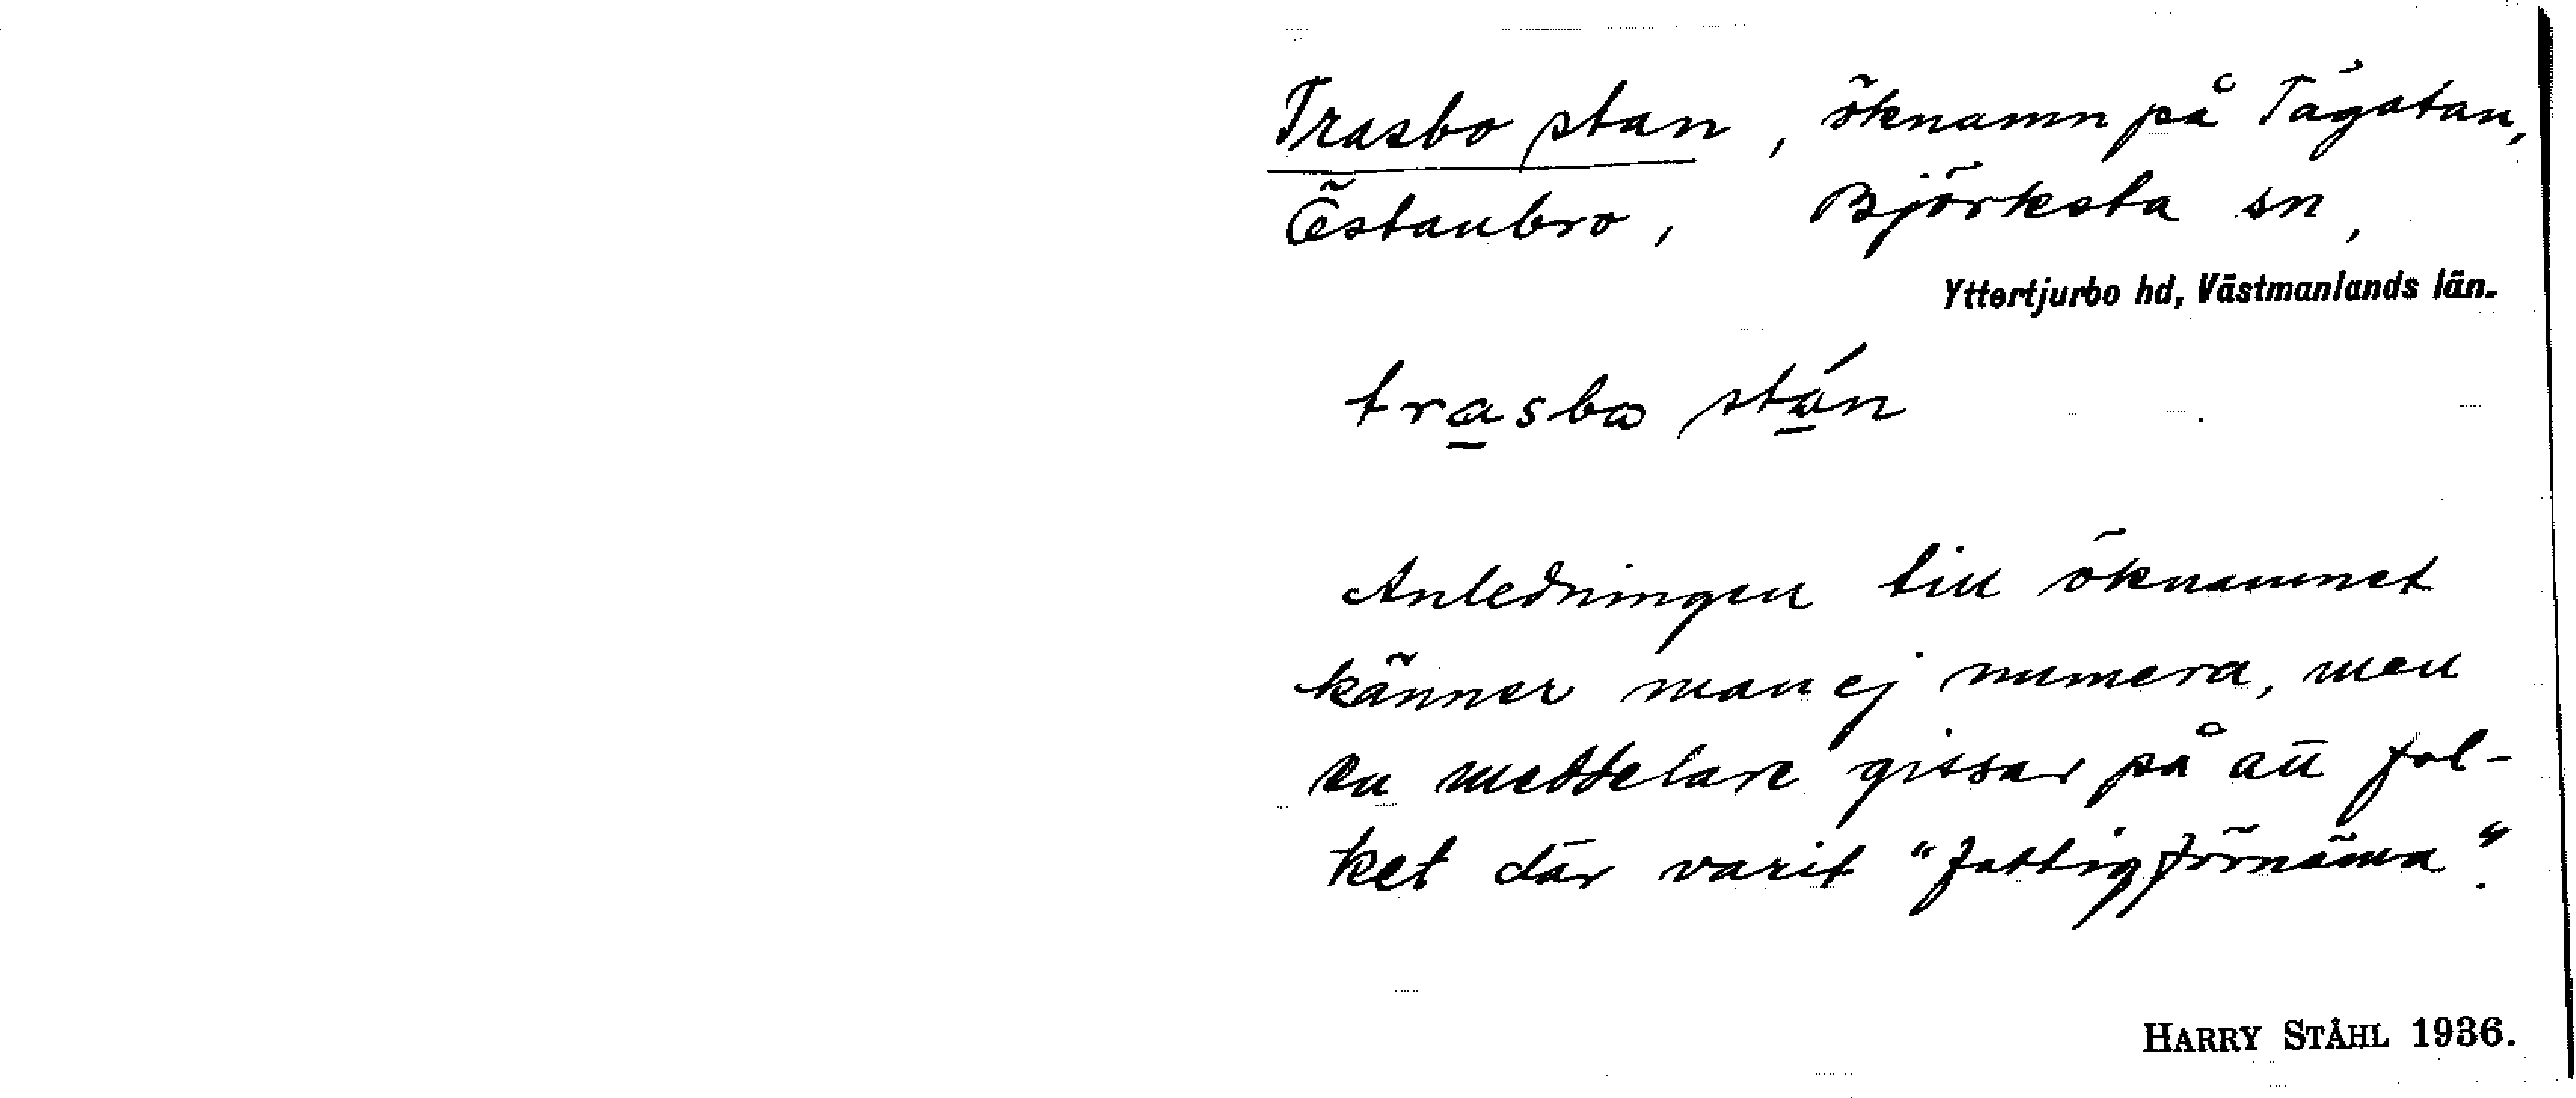 Trasbo stan, öknamn på Tågatan,
Östanbro, Björksta sn,
Yttertjurbo hd, Västmanlands län.
trasbo stán
Anledningen till öknamnet
känner man ej numera, men
en meddelare gissar på att fol-
ket där varit "fattigförnäma".
HARRY STÅHL 1936.